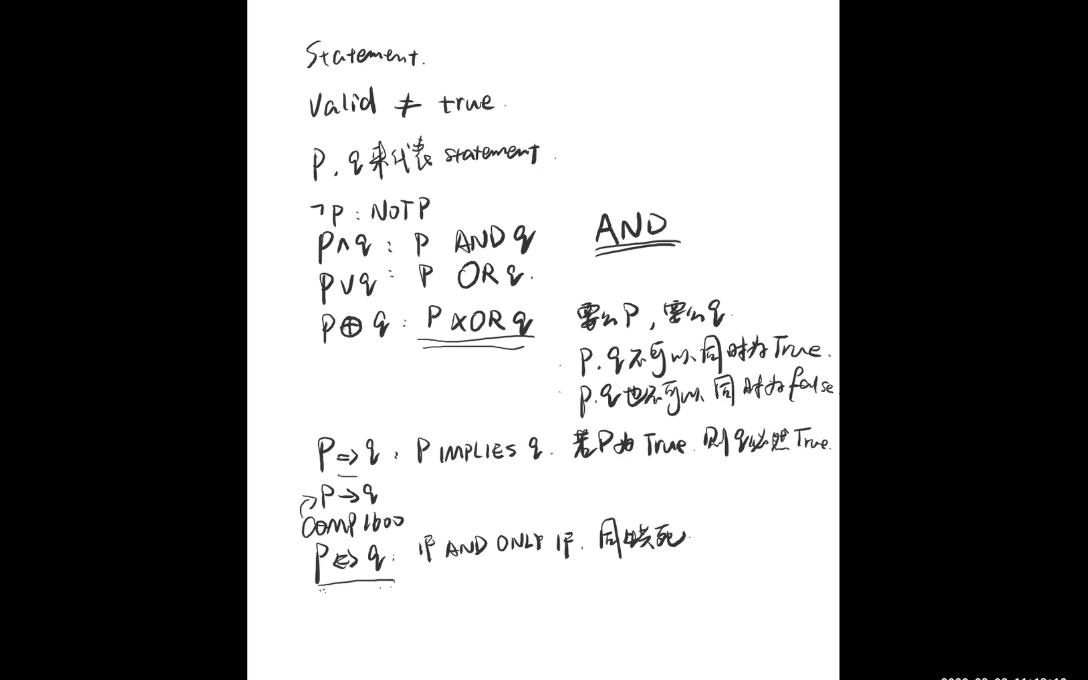 Statement.
Valid ≠ true.
P, q来代表 statement.
¬P : NOT P
P∧q : P AND q
AND
P∨q : P OR q.
P⊕q : P XOR q
要么P, 要么q
P.q不可以同时为True.
P.q也不可以同时为false
P⇒q, P IMPLIES q. 若P为True. 则q必然True.
P→q
COMP1600
P⇔q. IF AND ONLY IF. 同生共死.